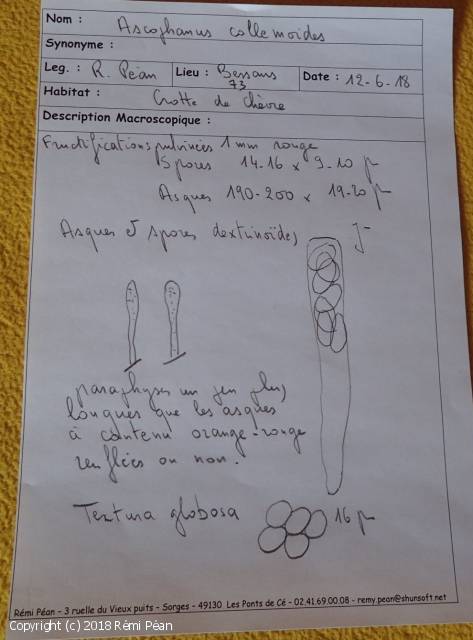 Nom : Ascophanus collemoides
Synonyme :
Leg. : R. Péan Lieu : Bessans 73 Date : 12-6-18
Habitat : Crotte de chèvre
Description Macroscopique :
Fructifications pulvinées 1 mm rouge
Spores 14-16 x 9-10 µ
Asques 190-200 x 19-20 µ
Asques et spores dextrinoïdes J-
paraphyses un peu plus
longues que les asques
à contenu orange-rouge
renflées ou non.
Textura globosa 16 µ
Rémi Péan - 3 ruelle du Vieux puits - Sorges - 49130 Les Ponts de Cé - 02.41.69.00.08 - remy.pean@shunsoft.net
Copyright (c) 2018 Rémi Péan